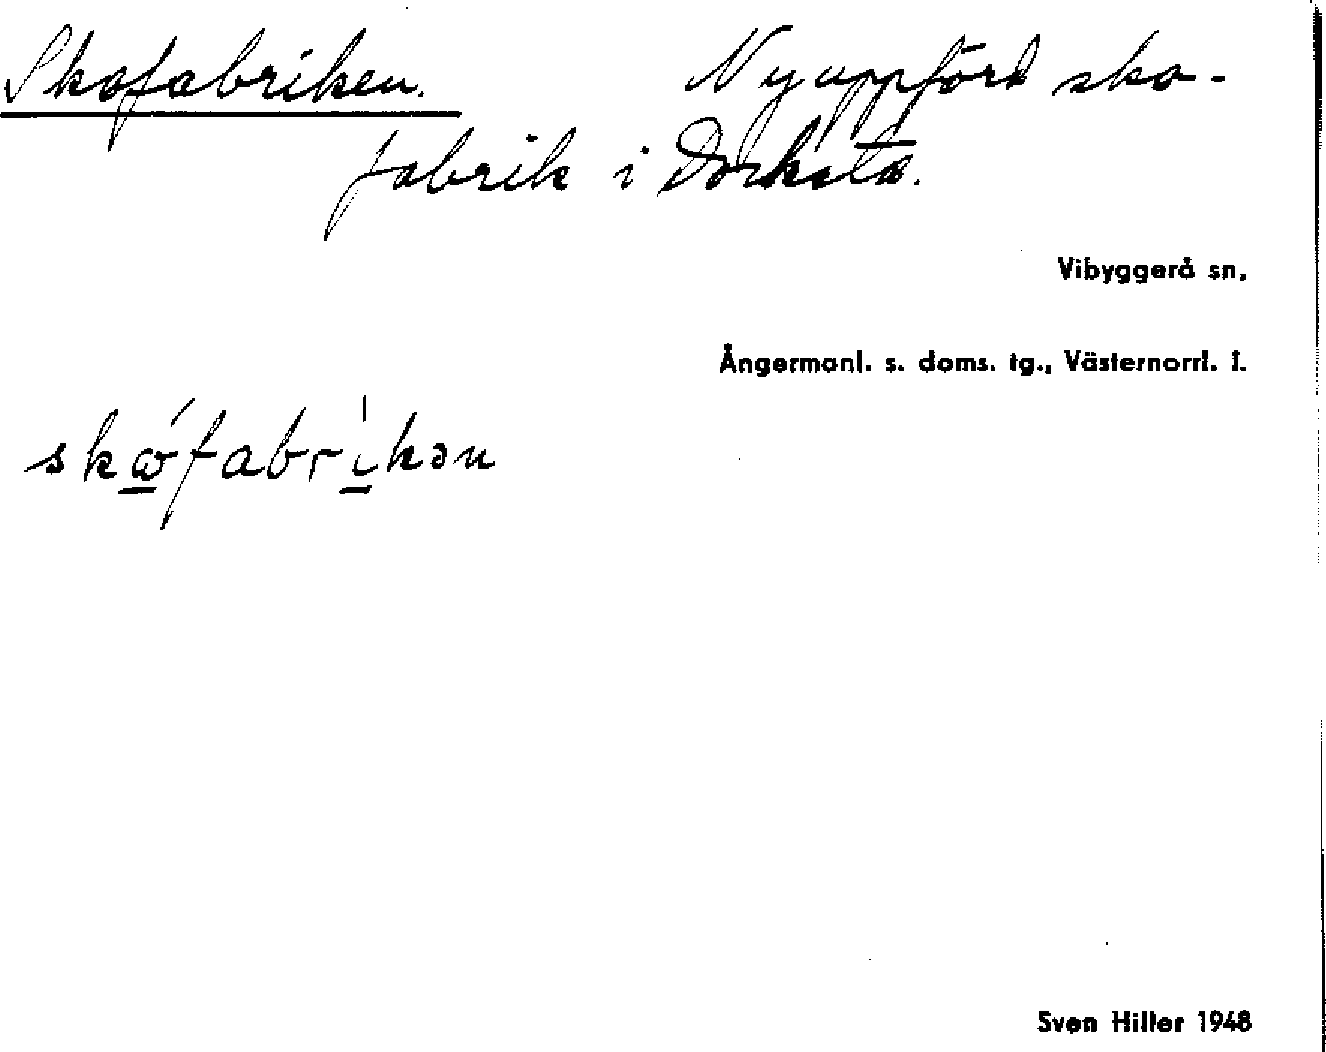 Skofabriken. Nyuppförd sko-
fabrik i Docksta.
Vibyggerå sn.
Ångermanl. s. doms. tg., Västernorrl. l.
skώ̱fabri̱̍kən
Sven Hiller 1948